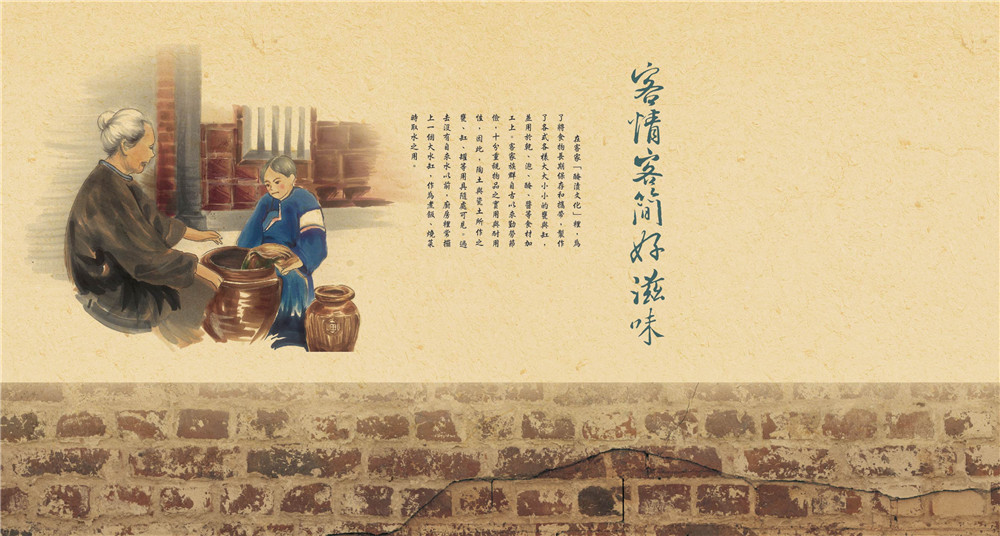 客情客簡好滋味
在客家「醃漬文化」裡，為
了將食物長期保存和攜帶，製作
了各式各樣大大小小的甕與缸，
並用於乾、泡、醃、醬等食材加
工上。客家族群自古以來勤勞節
儉，十分重視物品之實用與耐用
性，因此，陶土與瓷土所作之
甕、缸、罐等用具隨處可見。過
去沒有自來水以前，廚房裡常擺
上一個大水缸，作為煮飯、燒菜
時取水之用。